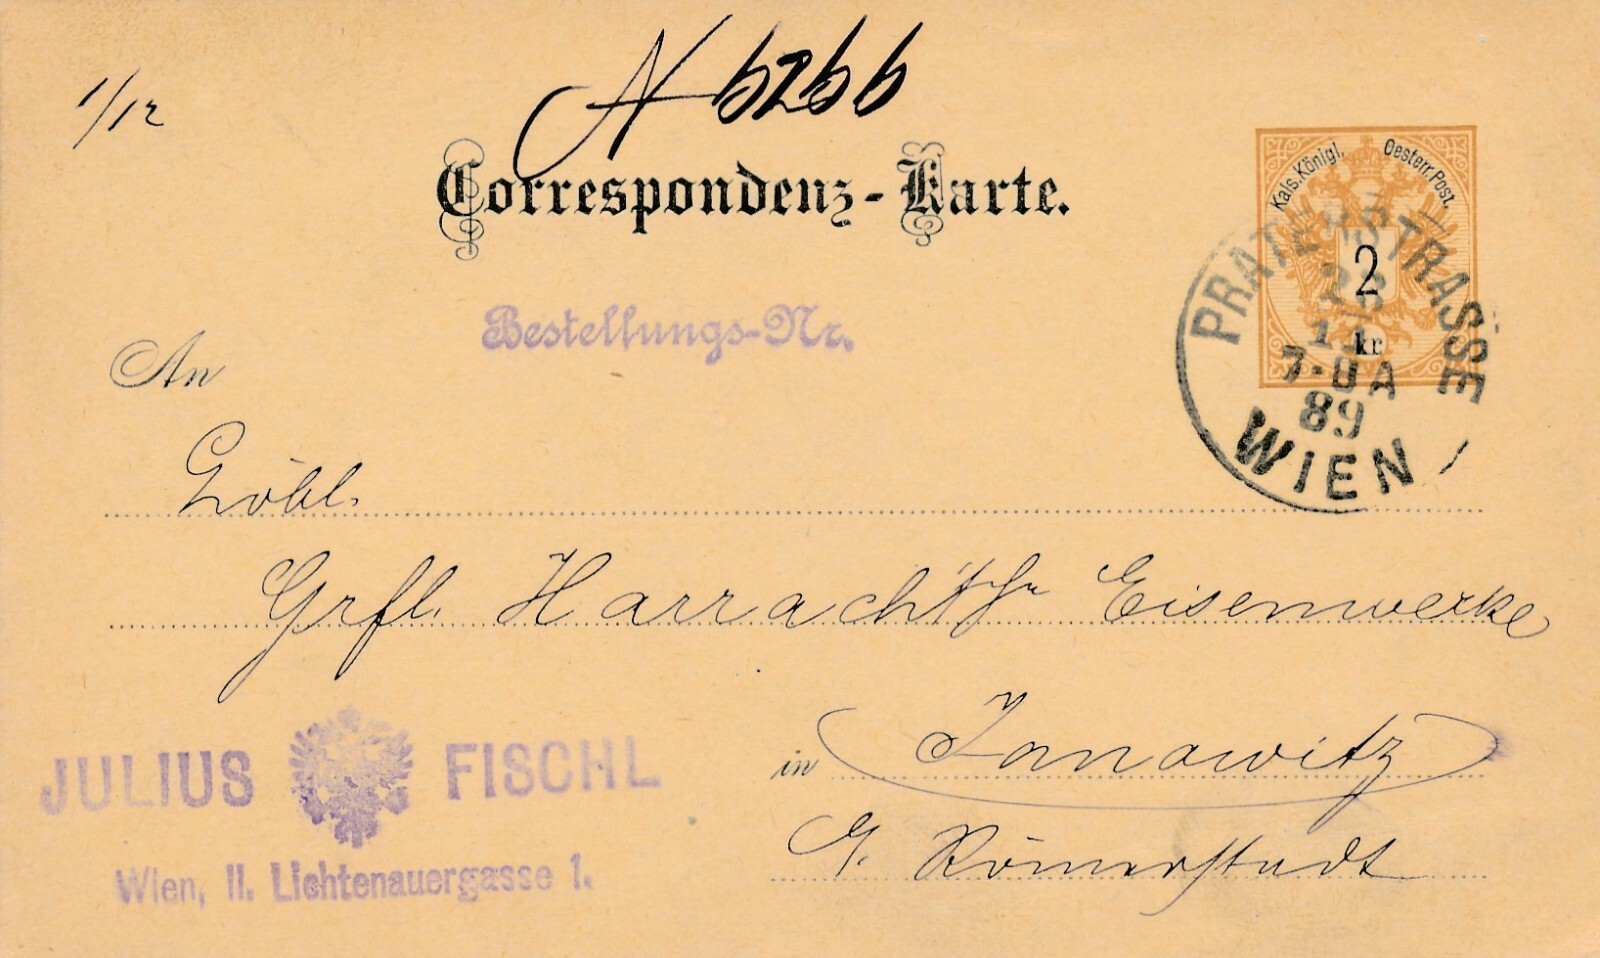 1/12
N 6266
Correspondenz-Karte.
Kais. Königl. Oesterr. Post.
2
kr
PRATERSTRASSE
11
89
WIEN
Bestellungs-Nr.
An
Löbl.
Grfl. Harrach'sche Eisenwerke
in Janowitz
b/. Römerstadt
JULIUS FISCHL
Wien, II. Lichtenauergasse 1.